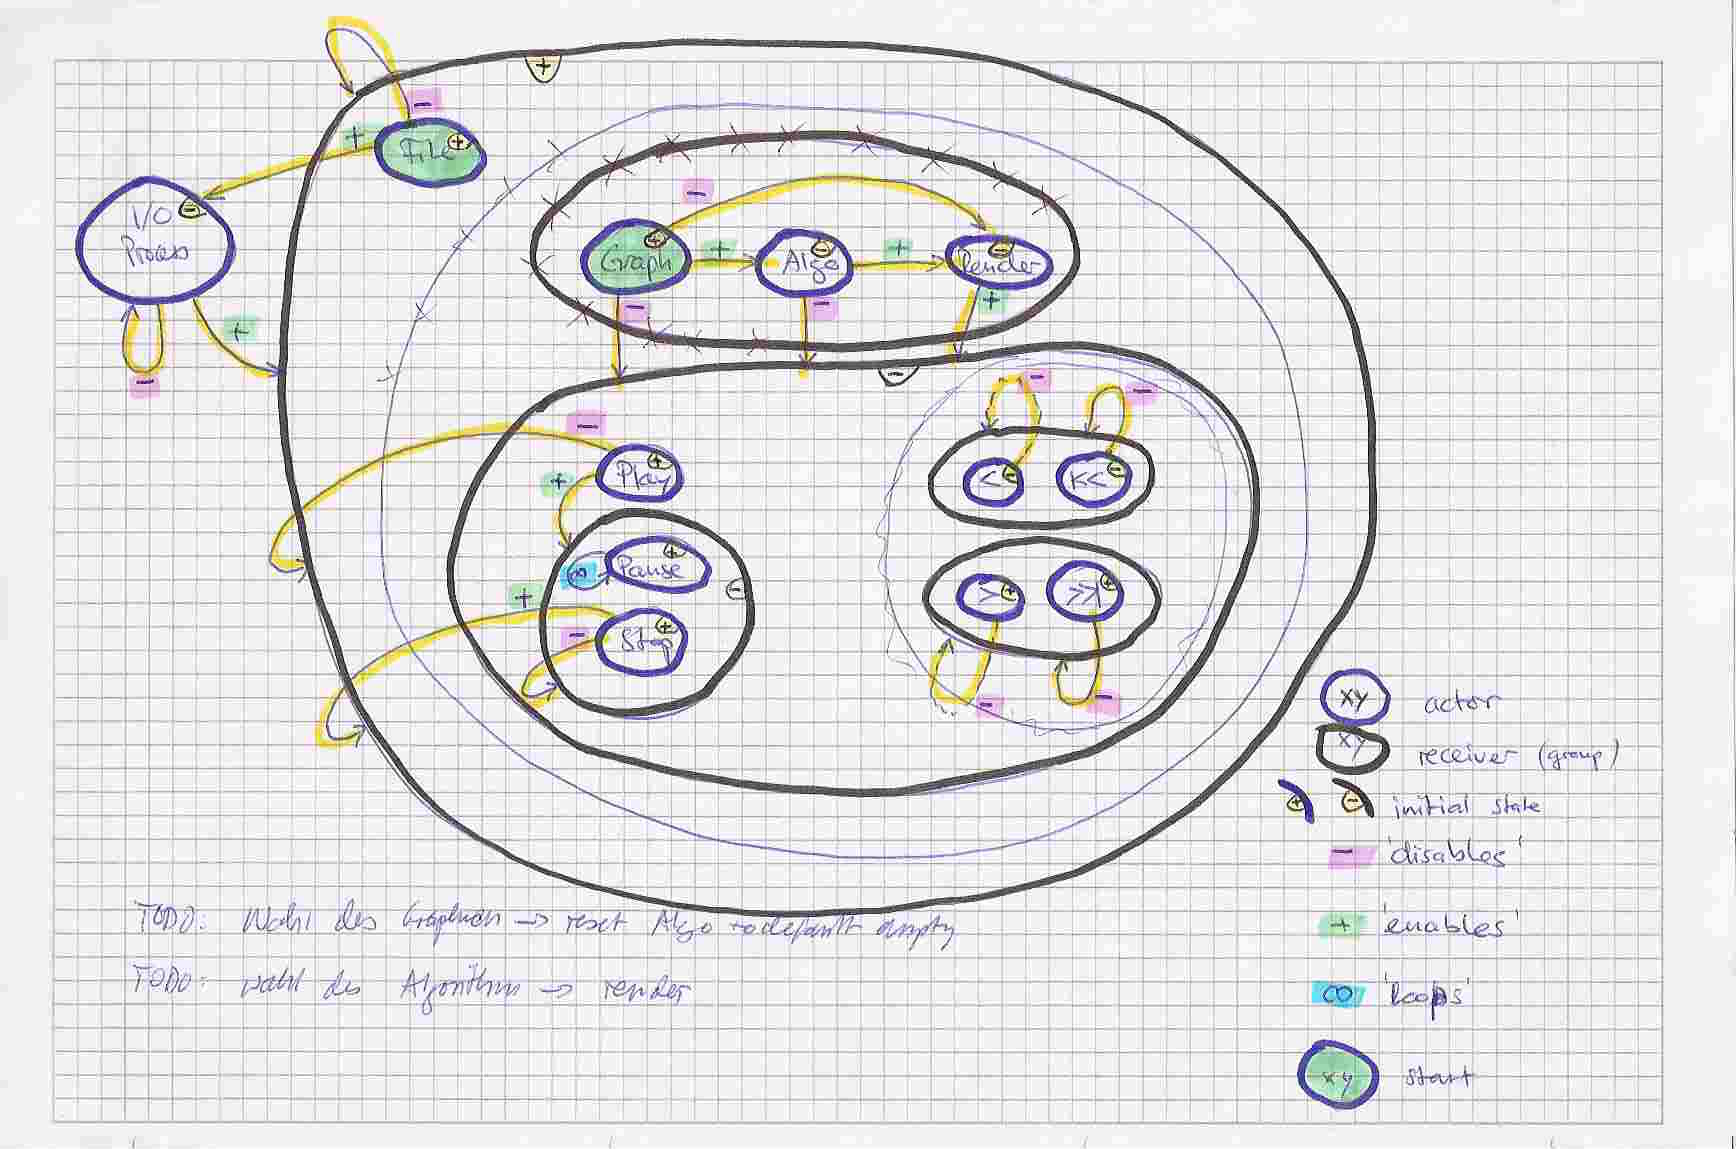 +
-
+
File +
I/O -
Process
-
+
-
Graph +
+
Algo -
+
Render -
-
-
+
-
-
Play +
+
∞
Pause +
-
+
-
Stop +
-
-
< -
K< -
> +
>>| +
-
-
xy actor
xy receiver (group)
+ - initial state
- 'disables'
+ 'enables'
∞ 'loops'
xy start
TODO: Wahl des Graphen -> reset Algo to default empty
TODO: Wahl des Algorithmus -> render